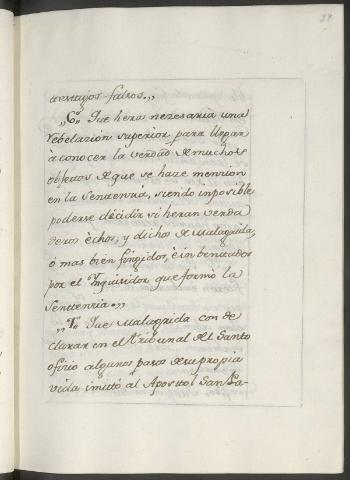 testigos falsos.,,
,,6.º Que hera nezesaria una
rebelazion superior para llegar
à conocer la verdad de muchos
objettos de que se haze menzion
en la Sentenzia, siendo inposible
poderse dezidir si heran verda
deros èchos, y dichos de Malagrida,
ó mas bien fingidos, è inbentados
por el Ynquisidor que formò la
Sentenzia.,,
,,7.º Que Malagrida con de
clarar en el tribunal del Santo
ofizio algunos pasos de su propia
vida imitó al Apostol San Pa-